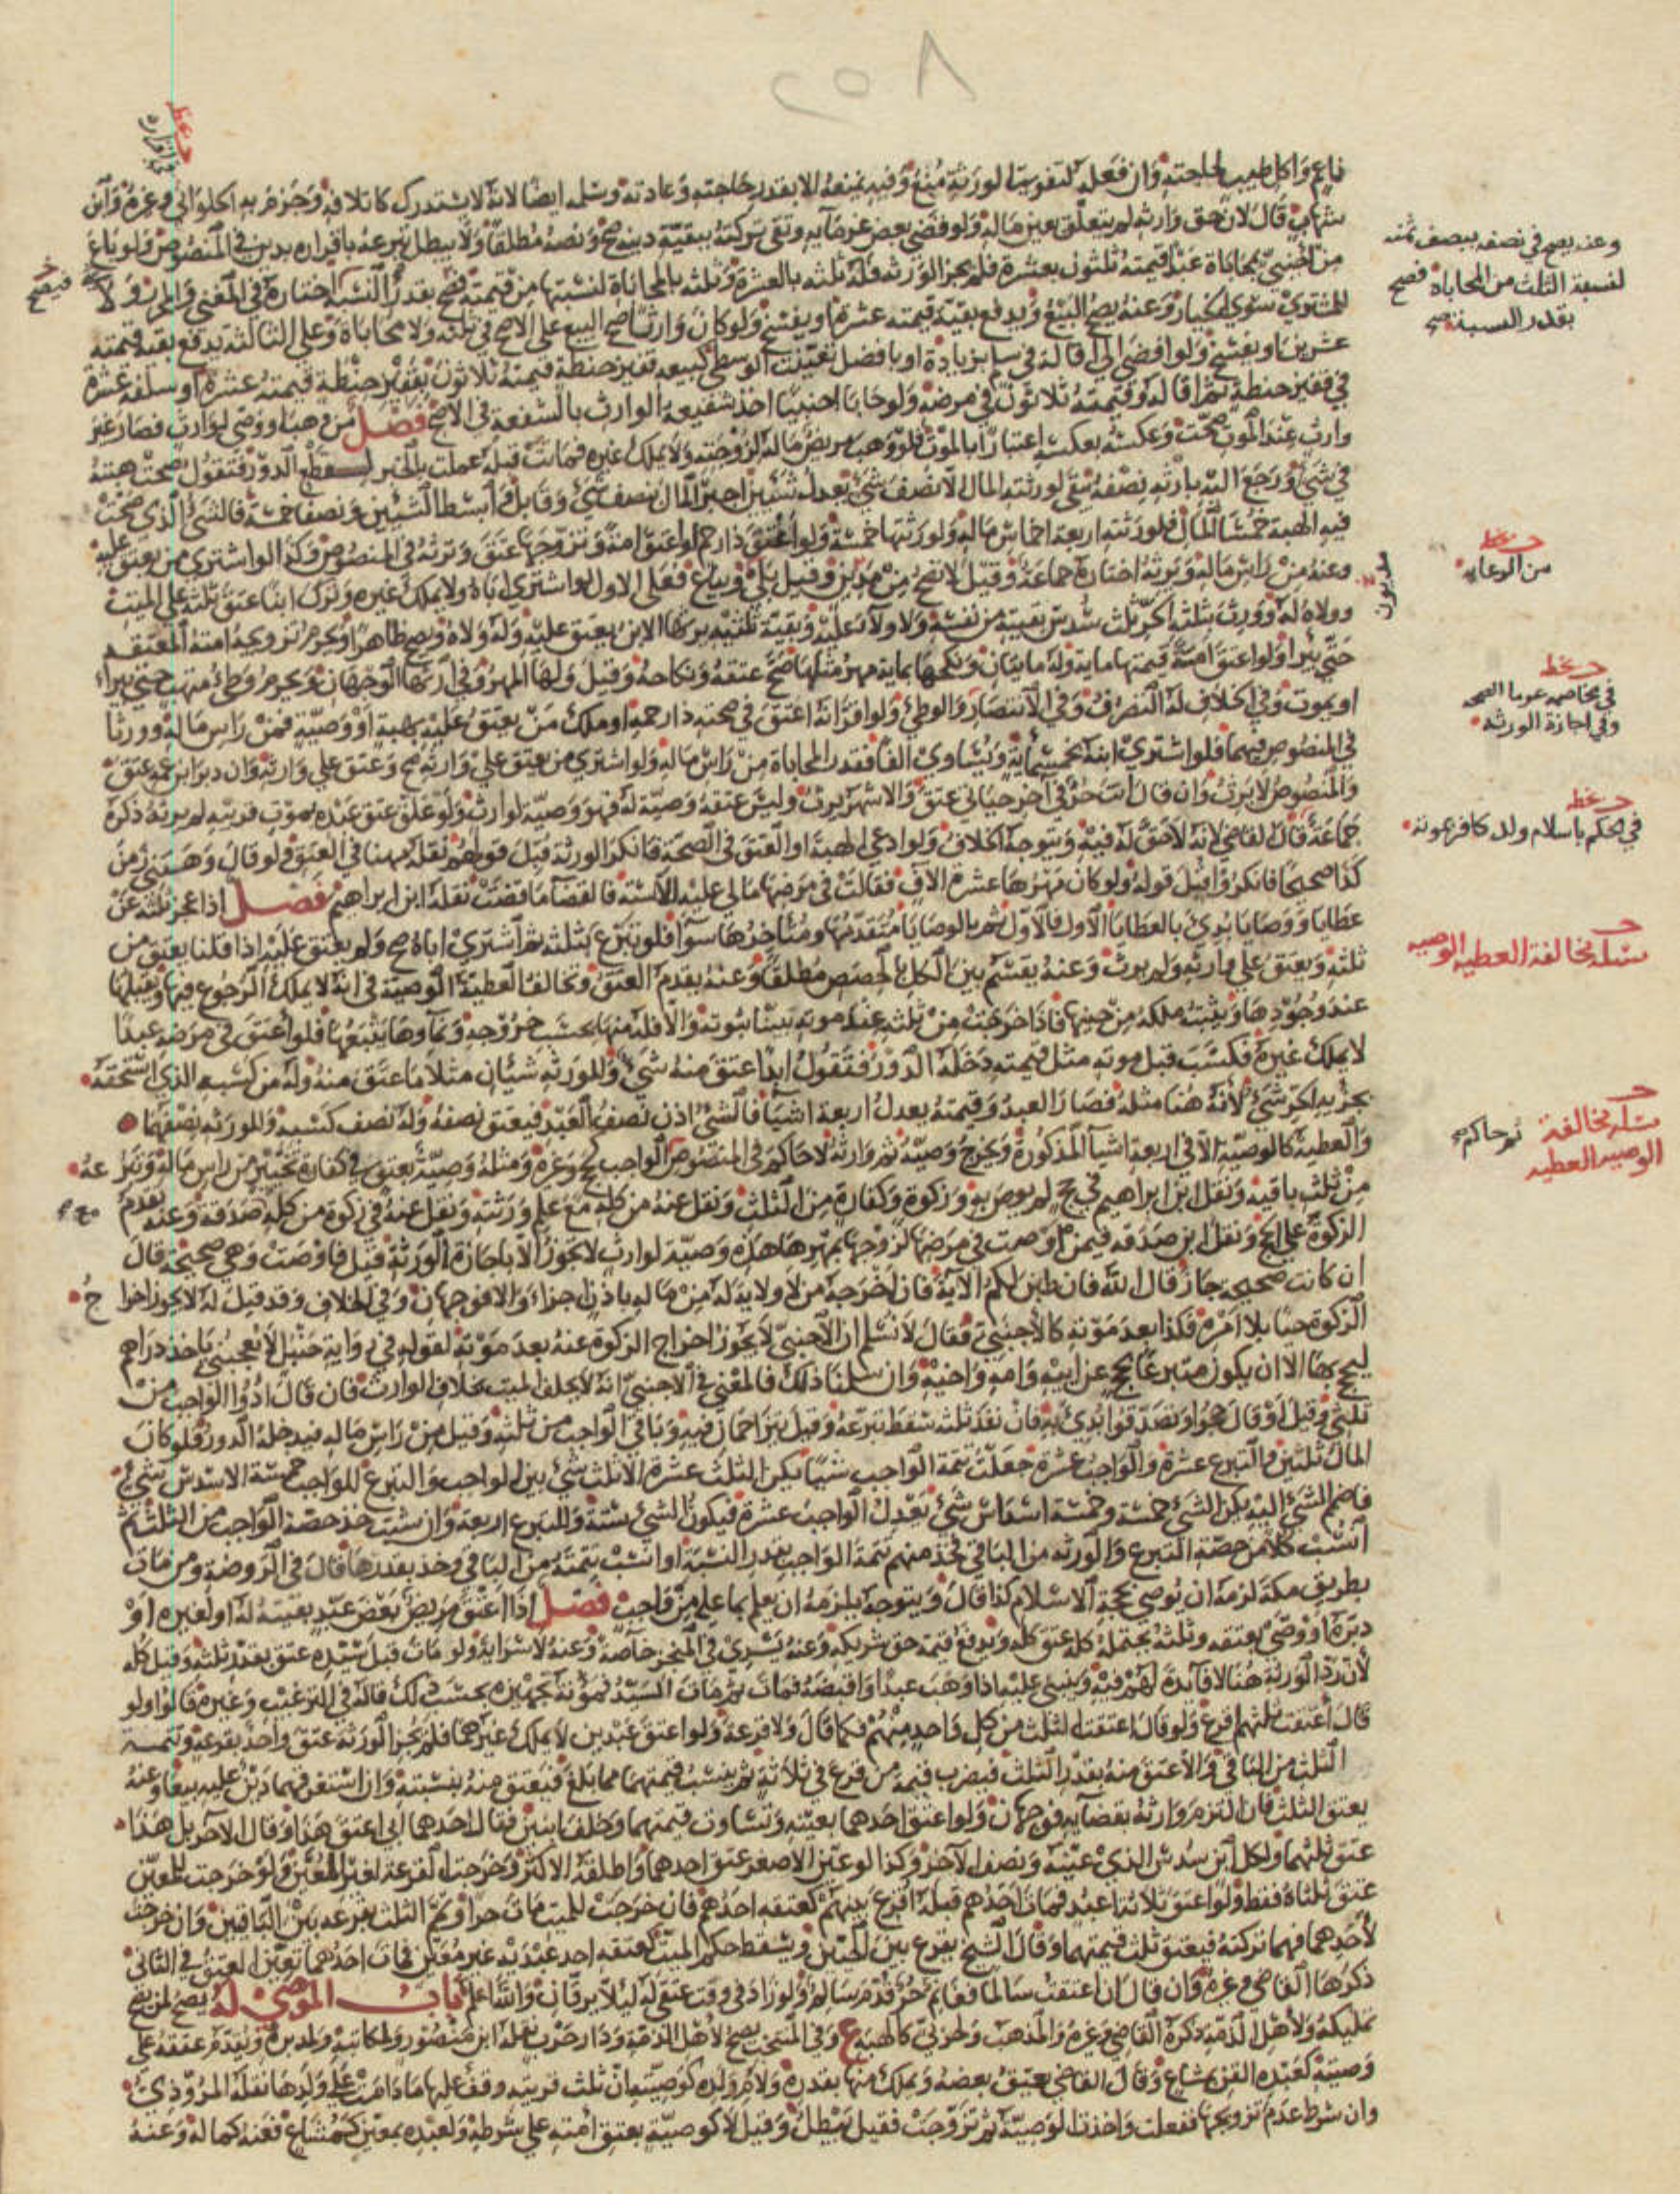 ٢٥٨
ناعم واكل طيب لحاجته وان فعله لتفويتها لورثته منع وفيه يمنعه الا بقدر حاجته وعادته وسلمه ايضا لانه لا يستدرك كاتلافه وجزم به الحلواني وغيره وابن
شهاب قال لان حق وارثه لم يتعلق بعين ماله ولو قضى بعض غرمائه وتفي تركته ببقية دينه صح ونصه مطلقا ولا يبطل تبرعه باقراره بدين في المنصوص ولو باع
من اجنبي بمحاباة عبدا قيمته ثلثون بعشرة فلم يجز الورثة فله ثلثه بالعشرة وثلثه بالمحاباة لنسبتها من قيمته فصح بقدر النسبة اختاره في المغني والمحرر ولا
للمشتري سوى الخيار وعنه يصح البيع ويدفع بقية قيمته عشرة او يفسخ ولو كان وارثا صح البيع على الاصح في ثلثه ولا محاباة وعلى الثالثة يدفع بقية قيمته
عشرين او يفسخ ولو افضى الى اقالة في سلم بزيادة او ربا فضل تعينت الوسطى كبيعه قفيز حنطة قيمته ثلاثون بقفيز حنطة قيمته عشرة او سلفه عشرة
في قفيز حنطة ثم اقاله وقيمته ثلاثون في مرضه ولو حابا اجنبيا اخذ شفيعه الوارث بالشفعة في الاصح فصل من وهب او وصى لوارث فصار غير
وارث عند الموت صحت وعكسه بعكسه اعتبارا بالموت فلو وهب مريض ماله لزوجته ولا يملك غيره فماتت قبله عملت بالجبر لقطع الدور فتقول صحت هبته
في شيء ورجع اليه بارثه نصفه بقي لورثته المال الا نصف شيء يعدل شيئين اجبر المال بنصف شيء وقابل ابسط الشيئين ونصفا خمسة فالشيء الذي صحت
فيه الهبة خمسا المال فلورثته اربعة اخماس ماله ولورثتها خمسة ولو اعتق ذا رحم او اعتق امة وتزوجها عتق وترثه في المنصوص وكذا لو اشترى من يعتق عليه
وعنه من راس ماله ويرثه اختاره جماعة وقيل لا تصح من مدين وقيل بلى ويباع فعلى الاول لو اشترى اباه ولا يملك غيره وترك ابنا عتق ثلثه على الميت
وولاه له وورث بثلثه الحر ثلث سدس بقيته من نفسه ولا ولاء عليه وبقية ثلثيه يرثها الابن يعتق عليه وله ولاه ويصح ظاهرا ويحرم تزويجه امته المعتقة
حتى يبرا ولو اعتق امة قيمتها ماية وله مائتان ونكحها بماية مهر مثلها صح عتقه ونكاحه وقيل ولها المهر وفي ارثها الوجهان ويحرم وطئ متهب حتى يبراء
او يموت وفي الخلاف له التصرف وفي الانتصار والوطئ ولو اقر انه اعتق في صحته ذا رحمه او ملك من يعتق عليه بهبة او وصية فمن راس ماله وورثا
في المنصوص فيهما فلو اشترى ابنه بخمسماية ويساوي الفا فقدر المحاباة من راس ماله ولو اشترى من يعتق على وارثه صح وعتق على وارثه وان دبر ابن عمه عتق
والمنصوص لا يرث وان قال انت حر في اخر حياتي عتق والاشهر يرث وليس عتقه وصية له فهو وصية لوارث ولو علق عتق عبده بموت قريبه لم يرثه ذكره
جماعة قال القاضي لانه لا حق له فيه ويتوجه الخلاف ولو ادعى الهبة او العتق في الصحة فانكر الورثة قبل قولهم نقله مهنا في العتق ولو قال وهبتني زمن
كذا صحيحا فانكروا قبل قوله ولو كان مهرها عشرة الاف فقالت في مرضها مالي عليه الا سنة فالقضا ما قضت نقله ابن ابراهيم فصل اذا عجز ثلثه عن
عطايا ووصايا بدئ بالعطايا الاول فالاول ثم بالوصايا متقدمها ومتاخرها سوا فلو تبرع بثلثه ثم اشترى اباه صح ولم يعتق عليه اذا قلنا يعتق من
ثلثه ويعتق على وارثه ولم يرث وعنه يقسم بين الكل بالحصص مطلقا وعنه يقدم العتق وتخالف العطية الوصية في انه لا يملك الرجوع فيها ويقبلها
عند وجودها ويثبت ملكه من حينها فاذا خرجت من ثلثه عند موته تبينا ثبوته والا فله منها بحسب خروجه ونماوها يتبعها فلو اعتق في مرضه عبدا
لا يملك غيره فكسب قبل موته مثل قيمته دخله الدور فتقول ابدا عتق منه شيء وللورثة شيئان مثلا ما عتق منه وله من كسبه الذي استحقه
بجزئه الحر شيء لانه هنا مثله فصار العبد وقيمته يعدل اربعة اشيا فالشيء اذن نصف العبد فيعتق نصفه وله نصف كسبه وللورثة نصفهما
والعطية كالوصية الا في اربعة اشيا المذكورة ويخرج وصية ثم وارثه لا حاكم في المنصوص الواجب كحج وغيره ومثله وصية بعتق في كفارة تخيير من راس ماله وتبرعه
من ثلث باقيه ونقل ابن ابراهيم في حج لم يوص به وزكوة وكفارة من الثلث ونقل عنه من كله مع علم ورثته ونقل عنه في زكوة من كله صدقة وعنه يقدم
الزكوة على الحج ونقل ابن صدقة فيمن اوصت في مرضها لزوجها بمهرها هذه وصية لوارث لا يجوز الا باجازة الورثة قيل فاوصت وهي صحيحة قال
ان كانت صحيحة جاز قال الله فان طبن لكم الاية فان اخرجه من لا ولاية له من ماله باذن اجزاء والا فوجهان وفي الخلاف وقد قيل له لا يجوز اخراج
الزكوة حيا بلا امره فكذا بعد موته كالاجنبي فقال لا نسلم ان الاجنبي لا يجوز اخراج الزكوة عنه بعد موته لقوله في رواية حنبل لا يعجبني ياخذ دراهم
ليحج بها الا ان يكون متبرعا بحج عن ابيه وامه واخيه وان سلمنا ذلك فالمعنى في الاجنبي انه لا يخلف الميت بخلاف الوارث فان قال ادوا الواجب من
ثلثي وقيل او قال حجوا او تصدقوا بدئ به فان نفد ثلثه سقط تبرعه وقيل يتزاحمان فيه وباقي الواجب من ثلثيه وقيل من راس ماله فيدخله الدور فلو كان
المال ثلثين والتبرع عشرة والواجب عشرة جعلت تتمة الواجب شيئا يكن الثلث عشرة الا ثلث شيء بين الواجب والتبرع للواجب خمسة الا سدس شيء
فاضم الشيء اليه يكن الشيء خمسة وخمسة اسداس شيء يعدل الواجب عشرة فيكون الشيء ستة وللتبرع اربعة وان شيت خذ حصة الواجب من الثلث ثم
انسب كلا من حصة التبرع والورثة من الباقي فخذ منهم تتمة الواجب بقدر النسبة او انسب تتمته من الباقي وخذ بقدرها قال في الروضة ومن مات
بطريق مكة لزمه ان يوصي بحجة الاسلام كذا قال ويتوجه يلزمه ان يعلم بما عليه من واجب فصل اذا اعتق مريض بعض عبد بقيته له او لغيره او
دبره او وصى بعتقه وثلثه يحتمل كله عتق كله ويدفع قيمة حق شريكه وعنه يسري في المنجز خاصة وعنه لا سراية ولو مات قبل سيده عتق بقدر ثلثه وقيل كله
لان رد الورثة هنا لا فائدة لهم فيه وينبني عليه اذا وهب عبدا واقبضه فمات ثم مات السيد فمؤنة تجهيزه بحسب ذلك قاله في الترغيب وغيره قالوا ولو
قال اعتقت ثلثهم اقرع ولو قال اعتقت الثلث من كل واحد منهم فكما قال ولا قرعة ولو اعتق عبدين لا يملك غيرهما فلم يجز الورثة عتق واحد بقرعة وتتمة
الثلث من الباقي والا عتق منه بقدر الثلث فيضرب قيمة من قرع في ثلاثة ثم ينسب قيمتهما مما بلغ فيعتق منه بنسبته وان استغرقهما دين عليه بيعا وعنه
يعتق الثلث فان التزم وارثه بقضايه فوجهان ولو اعتق احدهما بعينه وتساوت قيمتهما وخلف ابنين فقال احدهما ابي اعتق هذا وقال الاخر بل هذا
عتق ثلثهما ولكل ابن سدس الذي عينه ونصف الاخر وكذا لو عين الاصغر عتق احدهما واطلقه الاكبر وخرجت القرعة لغير المعين ولو خرجت للمعين
عتق ثلثاه فقط ولو اعتق ثلاثة اعبد فمات احدهم قبله اقرع بينهم كعتقه احدهم فان خرجت للميت مات حرا وتمم الثلث بقرعة بين الباقيين وان خرجت
لاحدهما فهما تركته فيعتق ثلث قيمتهما وقال الشيخ يقرع بين الحيين ويسقط حكم الميت كعتقه احد عبديه غير معين فمات احدهما تعين العتق في الثاني
ذكرها القاضي وغيره وان قال ان اعتقت سالما فغانم حر قدم سالم ولو زاد في وقت عتقي له ليلا يرقان والله اعلم باب الموصى له يصح لمن يصح
تمليكه ولاهل الذمة ذكره القاضي وغيره والمذهب ولحربي كالهبة ع وفي المنتخب يصح لاهل الذمة ودار حرب نقله ابن منصور ولمكاتبه ولمدبره ويقدم عتقه على
وصيته كعبده القن بمشاع وقال القاضي يعتق بعضه ويملك منها بقدره ولام ولده كوصيته ان ثلث قريته وقف عليها مادامت على ولدها نقله المروذي
وان شرط عدم تزويجها ففعلت واخذت الوصية ثم تزوجت فقيل يبطل وقيل لا كوصية بعتق امته على شرطه ولعبده بمعين كمشاع فعنه كماله وعنه
وعنه يصح في نصفه بنصف ثمنه
لنسبة الثلث من المحاباة فصح
بقدر النسبة صح
من الرعاية
في مخاصمه
وفي اجازة الورثة
في الحكم باسلام ولد كافر
مسئلة مخالفة العطية الوصية
مسئلة مخالفة
الوصية العطية
ثم حاكم صح
مديون